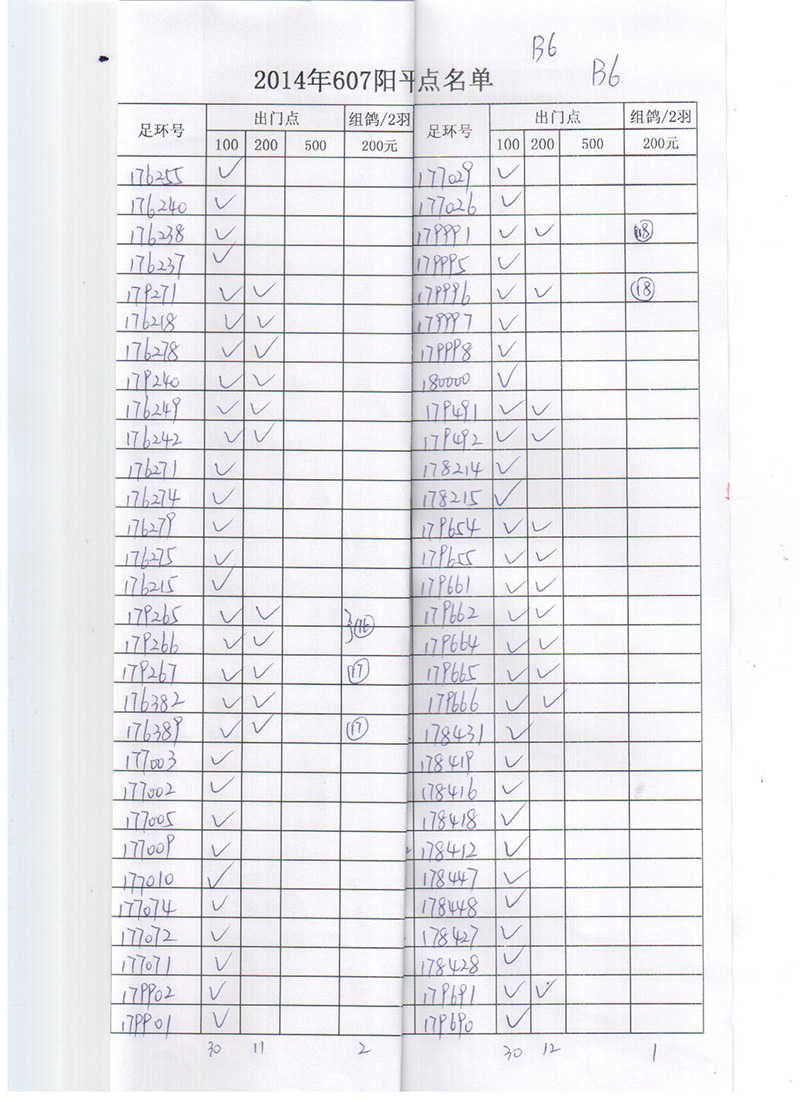 B6
B6
2014年607阳平点名单
足环号 出门点 组鸽/2羽 足环号 出门点 组鸽/2羽
100 200 500 200元 100 200 500 200元
176255 ✓ 177029 ✓
176240 ✓ 177026 ✓
176238 ✓ 179991 ✓ ✓ 18
176237 ✓ 179995 ✓
179271 ✓ ✓ 179996 ✓ ✓ 18
176218 ✓ ✓ 179997 ✓
176278 ✓ ✓ 179998 ✓
179240 ✓ ✓ 180000 ✓
176249 ✓ ✓ 179491 ✓ ✓
176242 ✓ ✓ 179492 ✓ ✓
176271 ✓ 178214 ✓
176274 ✓ 178215 ✓
176279 ✓ 179654 ✓ ✓
176275 ✓ 179655 ✓ ✓
176215 ✓ 179661 ✓ ✓
179265 ✓ ✓ 16 179662 ✓ ✓
179266 ✓ ✓ 179664 ✓ ✓
179267 ✓ ✓ 17 179665 ✓ ✓
176382 ✓ ✓ 179666 ✓ ✓
176389 ✓ ✓ 17 178431 ✓
177003 ✓ 178419 ✓
177002 ✓ 178416 ✓
177005 ✓ 178418 ✓
177009 ✓ 178412 ✓
177010 ✓ 178447 ✓
177074 ✓ 178448 ✓
177072 ✓ 178427 ✓
177071 ✓ 178428 ✓
179902 ✓ 179691 ✓ ✓
179901 ✓ 179690 ✓
30 11 2 30 12 1